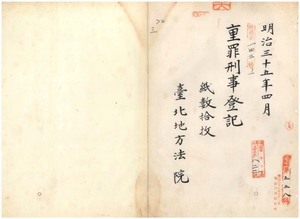 明治三十五年四月
重罪刑事登記
紙數拾枚
臺北地方法院